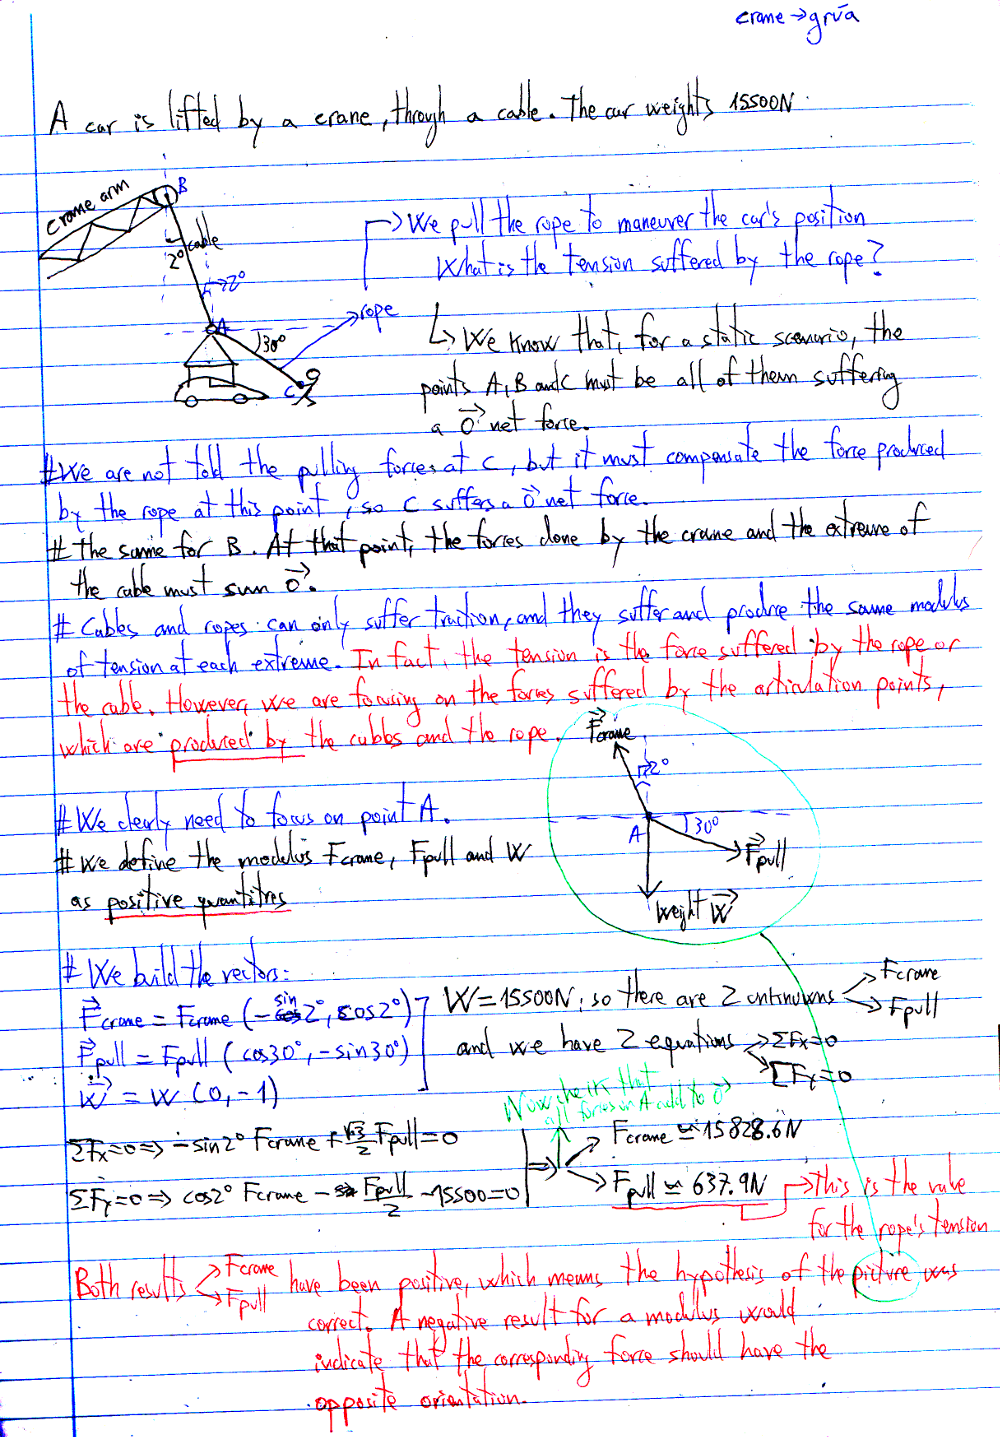 crane → grúa
A car is lifted by a crane, through a cable. The car weights 15500N.
crane arm
B
cable
2°
2°
A
30°
rope
C
→ We pull the rope to maneuver the car's position
What is the tension suffered by the rope?
↳ We know that, for a static scenario, the
points A, B and C must be all of them suffering
a 0⃗ net force.
# We are not told the pulling forces at C, but it must compensate the force produced
by the rope at this point, so C suffers a 0⃗ net force.
# The same for B. At that point, the forces done by the crane and the extreme of
the cable must sum 0⃗.
# Cables and ropes can only suffer traction, and they suffer and produce the same modulus
of tension at each extreme. In fact, the tension is the force suffered by the rope or
the cable. However, we are focusing on the forces suffered by the articulation points,
which are produced by the cables and the rope.
F⃗crane
2°
A
30°
F⃗pull
Weight W⃗
# We clearly need to focus on point A.
# We define the modulus Fcrane, Fpull and W
as positive quantities
# We build the vectors:
F⃗crane = Fcrane (-sin2°, cos2°)
F⃗pull = Fpull (cos30°, -sin30°)
W⃗ = W (0, -1)
W = 15500N, so there are 2 unknowns → Fcrane
→ Fpull
and we have 2 equations → ΣFx=0
→ ΣFy=0
Now check that
all forces in A add to 0⃗
ΣFx=0 ⇒ -sin2° Fcrane + √3/2 Fpull = 0
ΣFy=0 ⇒ cos2° Fcrane - Fpull/2 - 15500 = 0
⇒ Fcrane ≃ 15828.6N
Fpull ≃ 637.9N
→ This is the value
for the rope's tension
Both results → Fcrane → Fpull have been positive, which means the hypothesis of the picture was
correct. A negative result for a modulus would
indicate that the corresponding force should have the
opposite orientation.